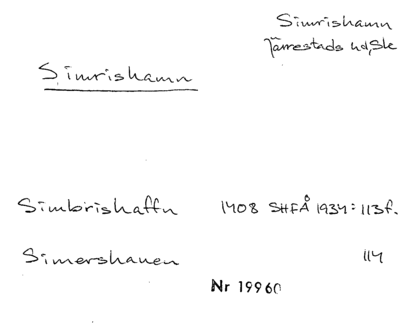 Simrishamn
Järrestads hd, Sk
Simrishamn
Simbrishaffn 1408 SHFÅ 1934: 113f.
Simershauen 114
Nr 19960